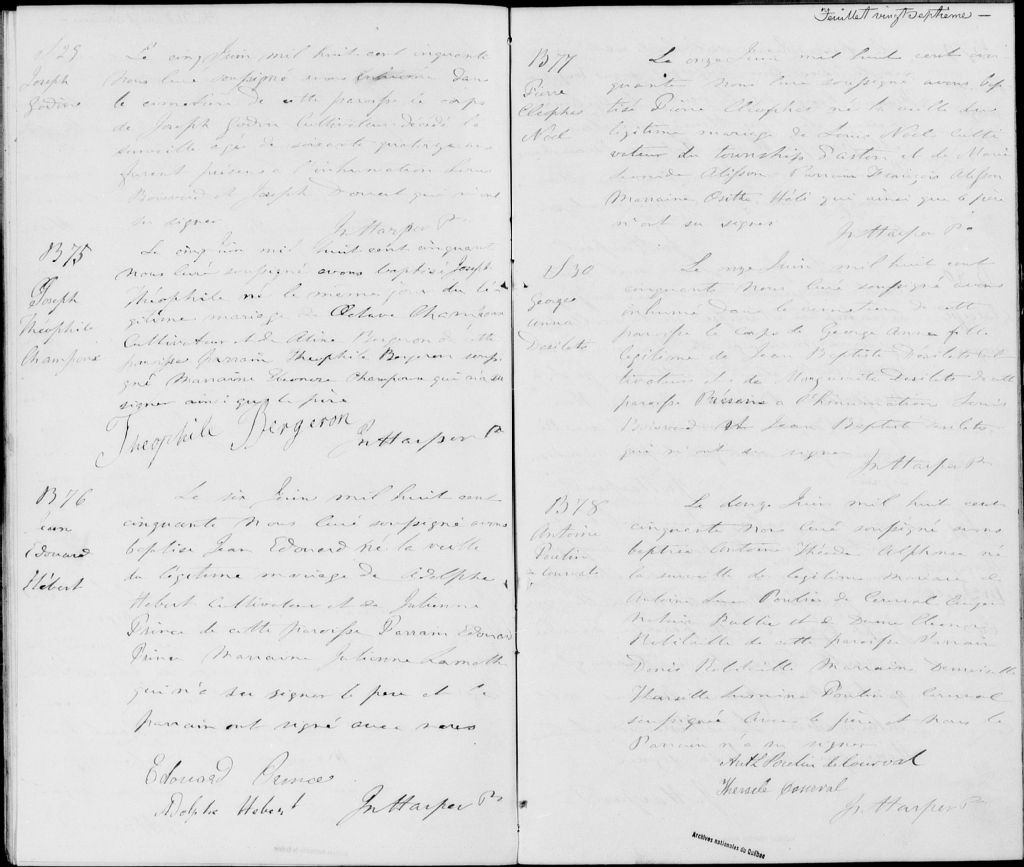 Feuillet vingt septième —
S 29
Joseph
Godin
Le cinq Juin mil huit cent cinquante
Nous Curé soussigné avons inhumé dans
le cimetière de cette paroisse le corps
de Joseph Godin Cultivateur décédé la
surveille agé de soixante quatorze ans
furent présens a l'inhumation Louis
Boisverd et Joseph qui n'ont
su signer
Jn Harper Ptre
B 75
Joseph
Théophile
Champoux
Le cinq Juin mil huit cent cinquante
nous Curé soussigné avons baptisé Joseph
Théophile né le meme jour du lé-
gitime mariage de Octave Champoux
Cultivateur et de Bergeron de cette
paroisse Parrain Theophile Bergeron sous-
igné Marraine Champoux qui n'a su
signer ainsi que le père
Theophile Bergeron
Jn Harper Ptre
B 76
Jean
Edouard
Hébert
Le six Juin mil huit cent
cinquante Nous Curé soussigné avons
baptisé Jean Edouard né la veille
du légitime mariage de Adolphe
Hebert Cultivateur et de Julienne
Prince de cette paroisse Parrain Edouard
Prince Marraine Julienne Lamothe
qui n'a su signer le pere et le
parrain ont signé avec nous
Edouard Prince
Adolphe Hebert
Jn Harper Ptre
B 77
Pierre
Cléophas
Noel
Le onze Juin mil huit cent cin
quante Nous Curé soussigné avons bap
tisé Pierre Cléophas né la veille du
légitime mariage de Louis Noel Culti
vateur du township d'aston et de Marie
Parrain François
Marraine Osithe Héli qui ainsi que le père
n'ont su signer
Jn Harper Ptre
S 30
George
anna
Desilets
Le onze Juin mil huit cent
cinquante Nous Curé soussigné avons
inhumé dans le cimetière de cette
paroisse le corps de George Anna fille
légitime de Jean Baptiste Desilets Cul
tivateur et de Marguerite Desilets de cette
paroisse Présens a l'inhumation Louis
Boisverd et Jean Baptiste Desilets
qui n'ont su signer
Jn Harper Ptre
B 78
Antoine
Poulin
de Courval
Le douze Juin mil huit cent
cinquante Nous Curé soussigné avons
baptisé Antoine Alphonse né
la surveille du légitime mariage de
Antoine Poulin de Courval Ecuyer
Notaire Public et de Dame
Robitaille de cette paroisse Parrain
Robitaille Marraine Demoiselle
Poulin de Courval
soussignée avec le père et Nous le
Parrain n'a su signer
Ant. Poulin de Courval
Courval
Jn Harper Ptre
Archives nationales du Québec